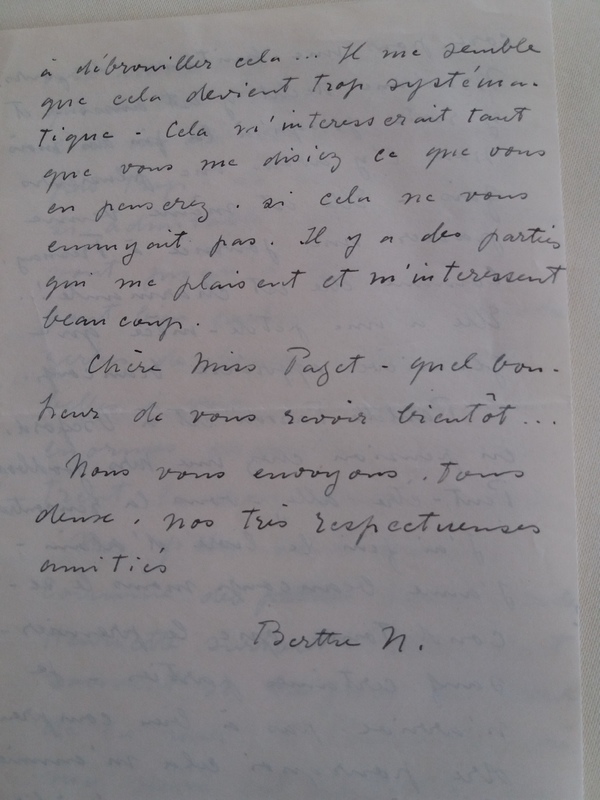 à débrouiller cela... Il me semble
que cela devient trop systéma-
tique - Cela m'interesserait tant
que vous me disiez ce que vous
en penserez. si cela ne vous
ennuyait pas. Il y a des parties
qui me plaisent et m'interessent
beaucoup.
Chère Miss Paget - quel bon-
heur de vous revoir bientôt...
Nous vous envoyons. tous
deux. nos très respectueuses
amitiés
Berthe N.